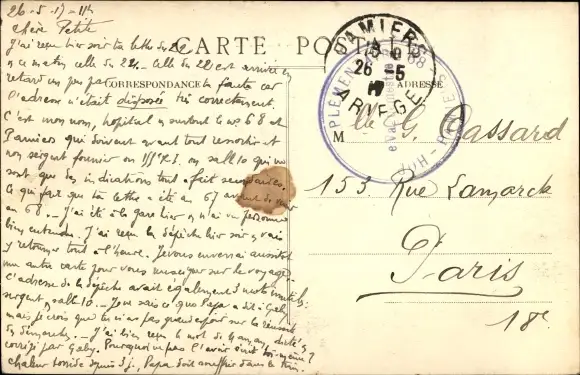 26-5-17 - 11h
Chère Petite
J'ai reçu hier soir ta lettre du 22
ce matin celle du 24. Celle du 22 est arrivée en
retard un peu par ta faute car
l'adresse n'était disposée très correctement.
C'est mon nom, hôpital et surtout le n° 68 et
Pamiers qui doivent avant tout ressortir et
non sergent fourrier ou salle 10 qui ne
sont que des indications tout à fait secondaires.
Ce qui fait que ta lettre a été au 67 avant de
au 68. J'ai été à la gare hier et n'ai vu personne
bien entendu. J'ai reçu la dépêche hier soir et vais
y retourner tout à l'heure. Je vous enverrai aussitôt
une autre carte pour vous renseigner sur le voyage.
L'adresse de la dépêche avait également d'inutile:
sergent, salle 10. Je ne sais ce que Papa a dit à Gaby
mais je crois que tu n'as pas grand espoir sur la réussite
des démarches. J'ai bien reçu le mot de dicté et
corrigé par Gaby. Pourquoi ne pas l'avoir
chaleur torride depuis 3 j. Papa doit souffrir dans le train.
CARTE POSTALE
CORRESPONDANCE
ADRESSE
PAMIERS
26 -5
17
ARIEGE
68
HOP
M lle G. Cassard
153 Rue Lamarck
Paris
18e